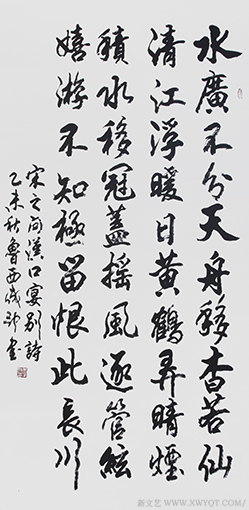 水廣不分天舟移杳若仙
清江浮暖日黃鶴弄晴煙
積水移冠蓋搖風逐管絃
嬉游不知極留恨此長川
宋之问漢口宴别詩
乙未秋魯西書
新文艺 WWW.XWYQT.COM